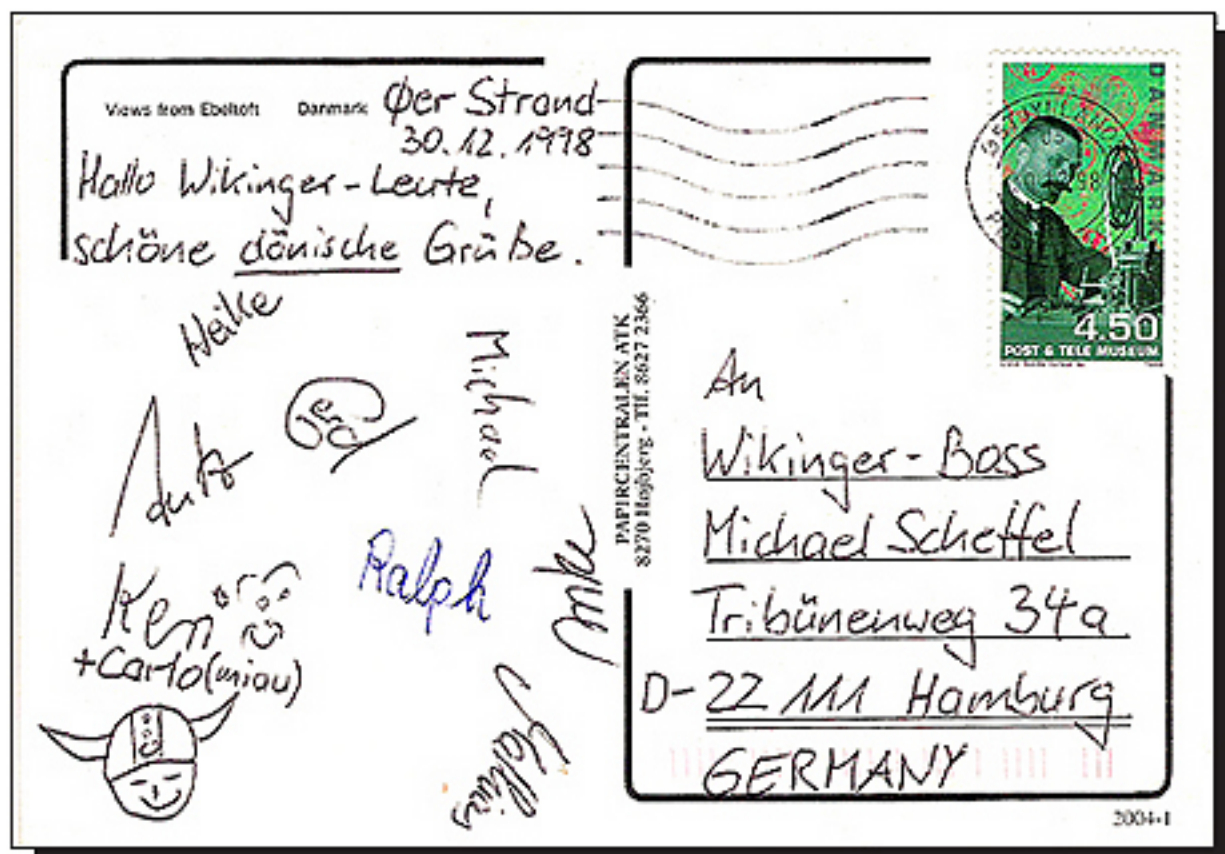 Views from Ebeltoft Danmark
Øer Strand
30.12.1998
Hallo Wikinger-Leute,
schöne dänische Grüße.
Heike
Michael
Gerd
Ralph
Anke
Ken
+Carlo (miau)
PAPIRCENTRALEN ATK
8270 Højbjerg - Tlf. 8627 2366
DANMARK
4.50
POST & TELE MUSEUM
An
Wikinger-Boss
Michael Scheffel
Tribünenweg 34a
D-22 111 Hamburg
GERMANY
2004-1